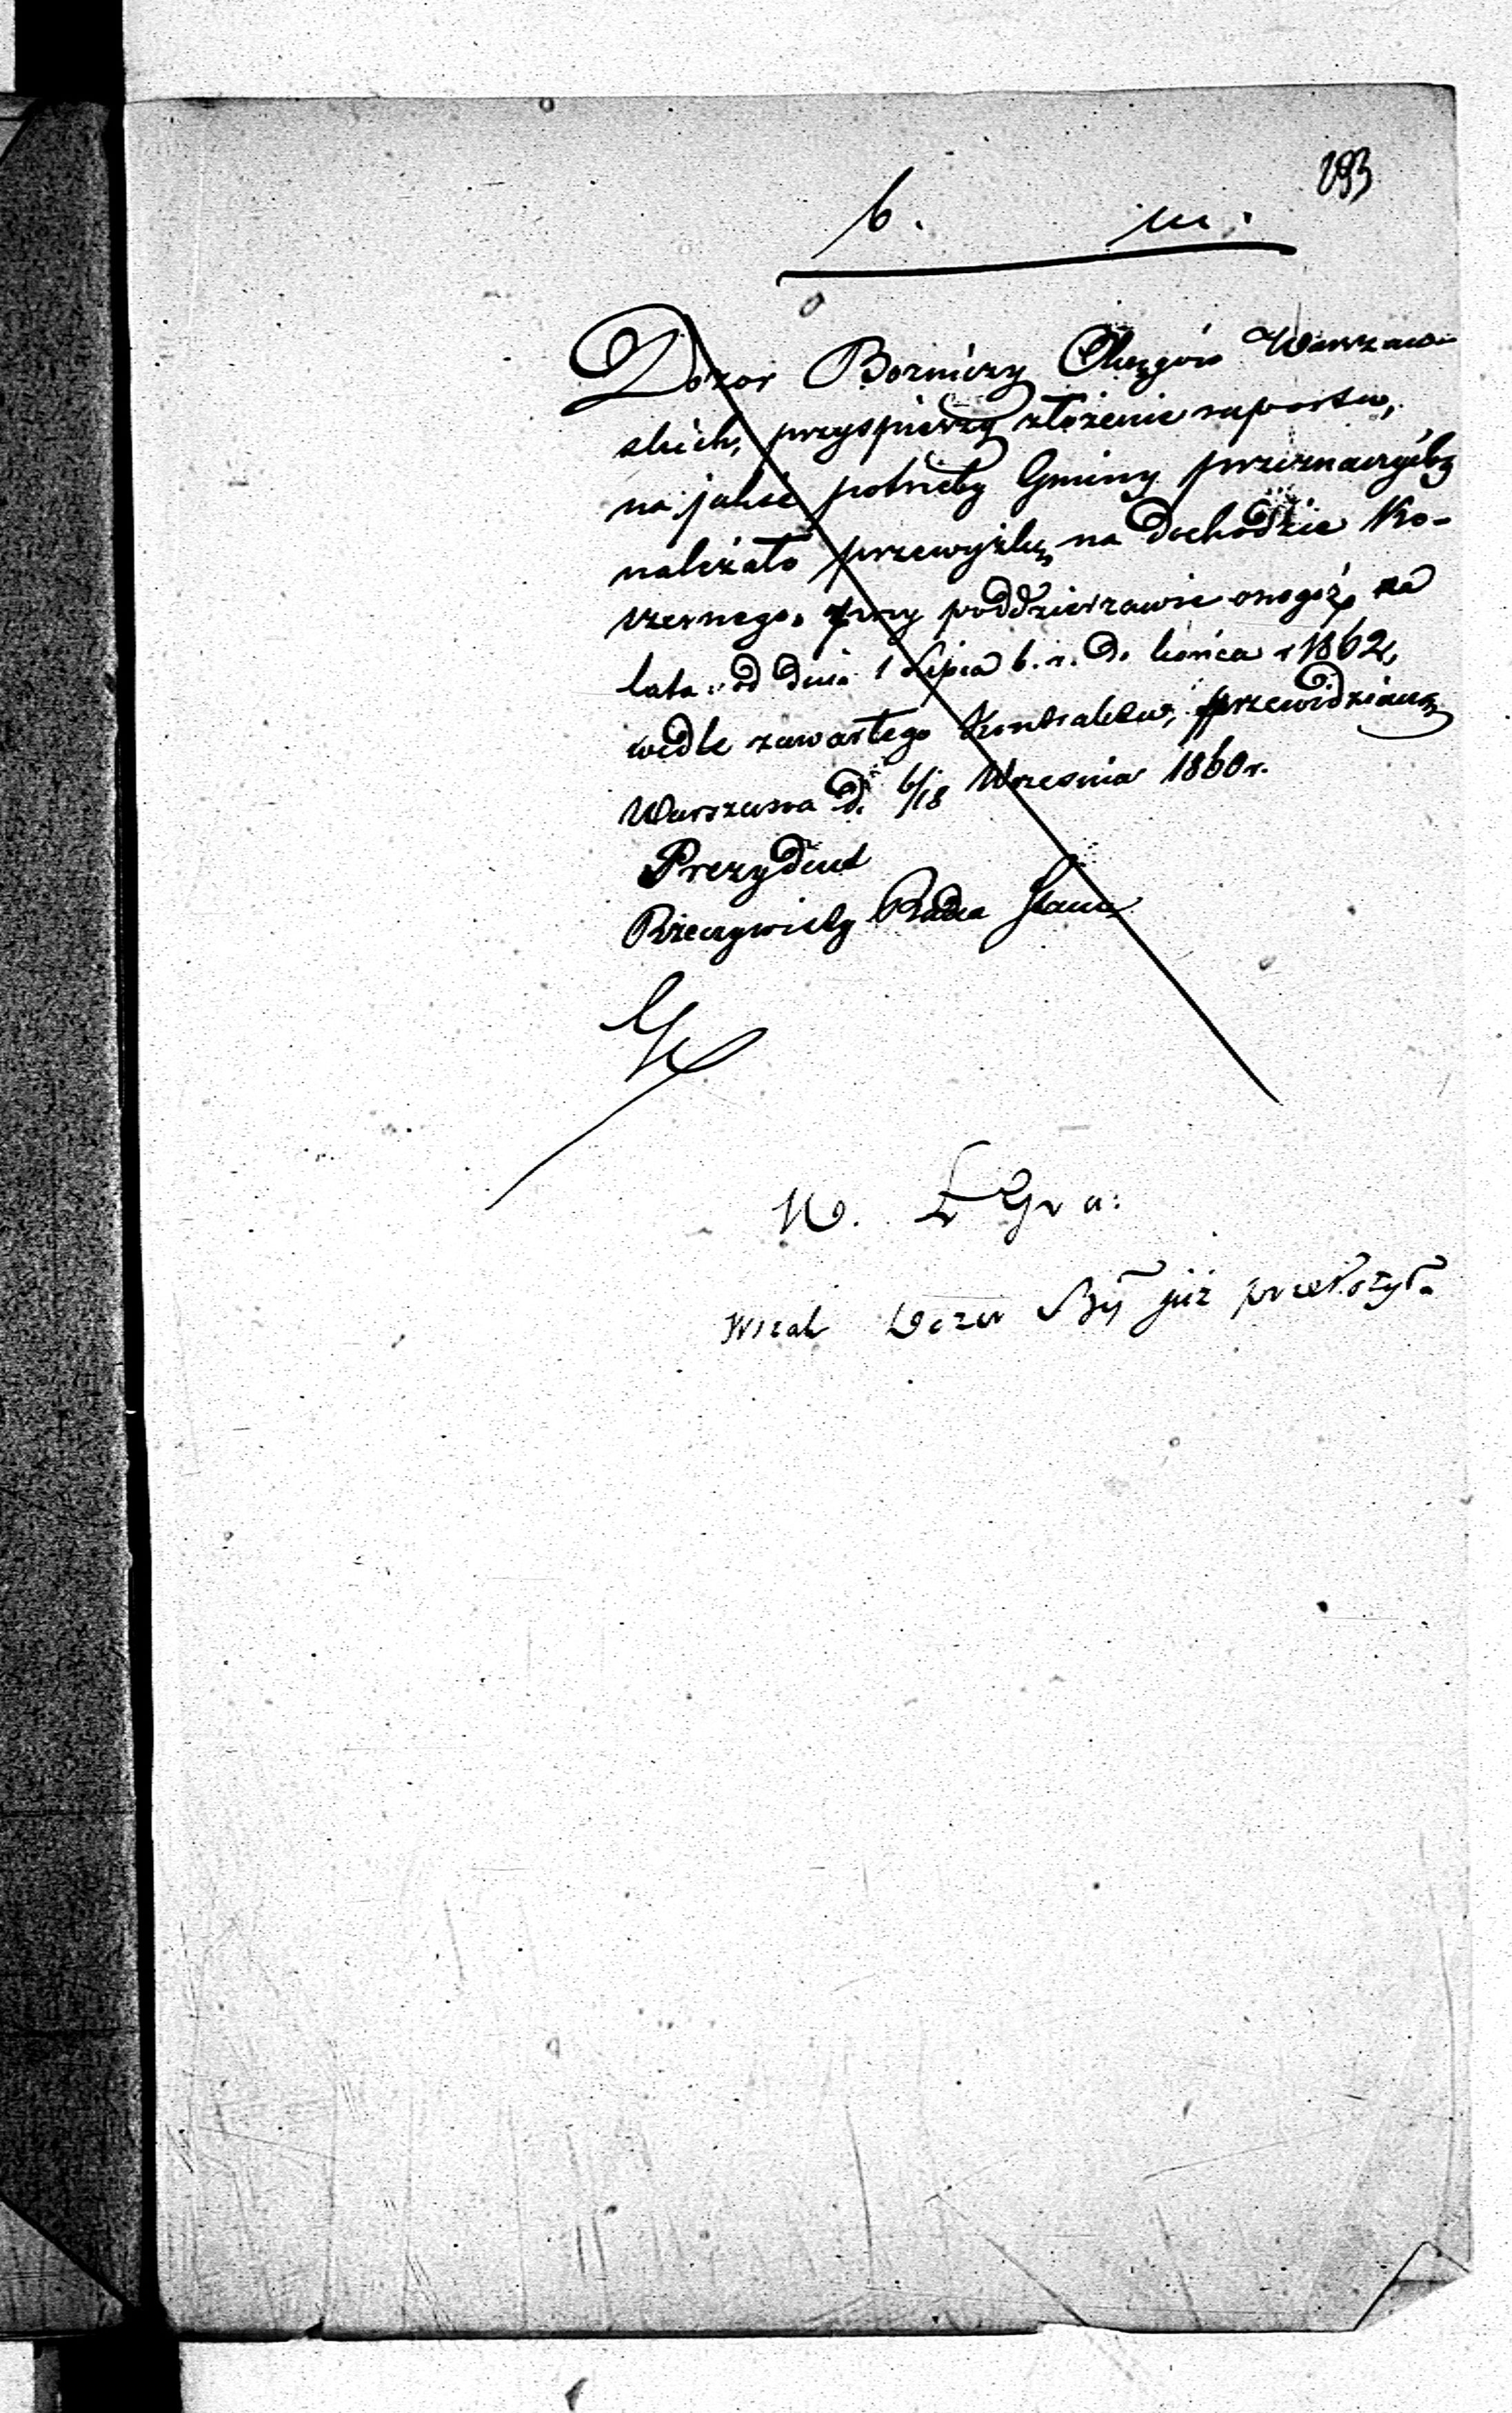 293
b. m.
Dozor Bozniczy Okręgów Warszaw-
skich, przyspieszy złożenie raportu,
na jakie potrzeby Gminy przeznaczyćby
należało przewyżkę na dochodzie Ko-
szernego, przy poddzierzawie onegoż, na
lata od dnia 1 Lipca b. r. do końca r 1862,
wedle zawartego Kontraktu, przewidzianą
Warszawa d. 6/18 Września 1860 r.
Prezydent
Rzeczywisty Radca Stanu
N.
Wszak Dozor Bż już przełożył